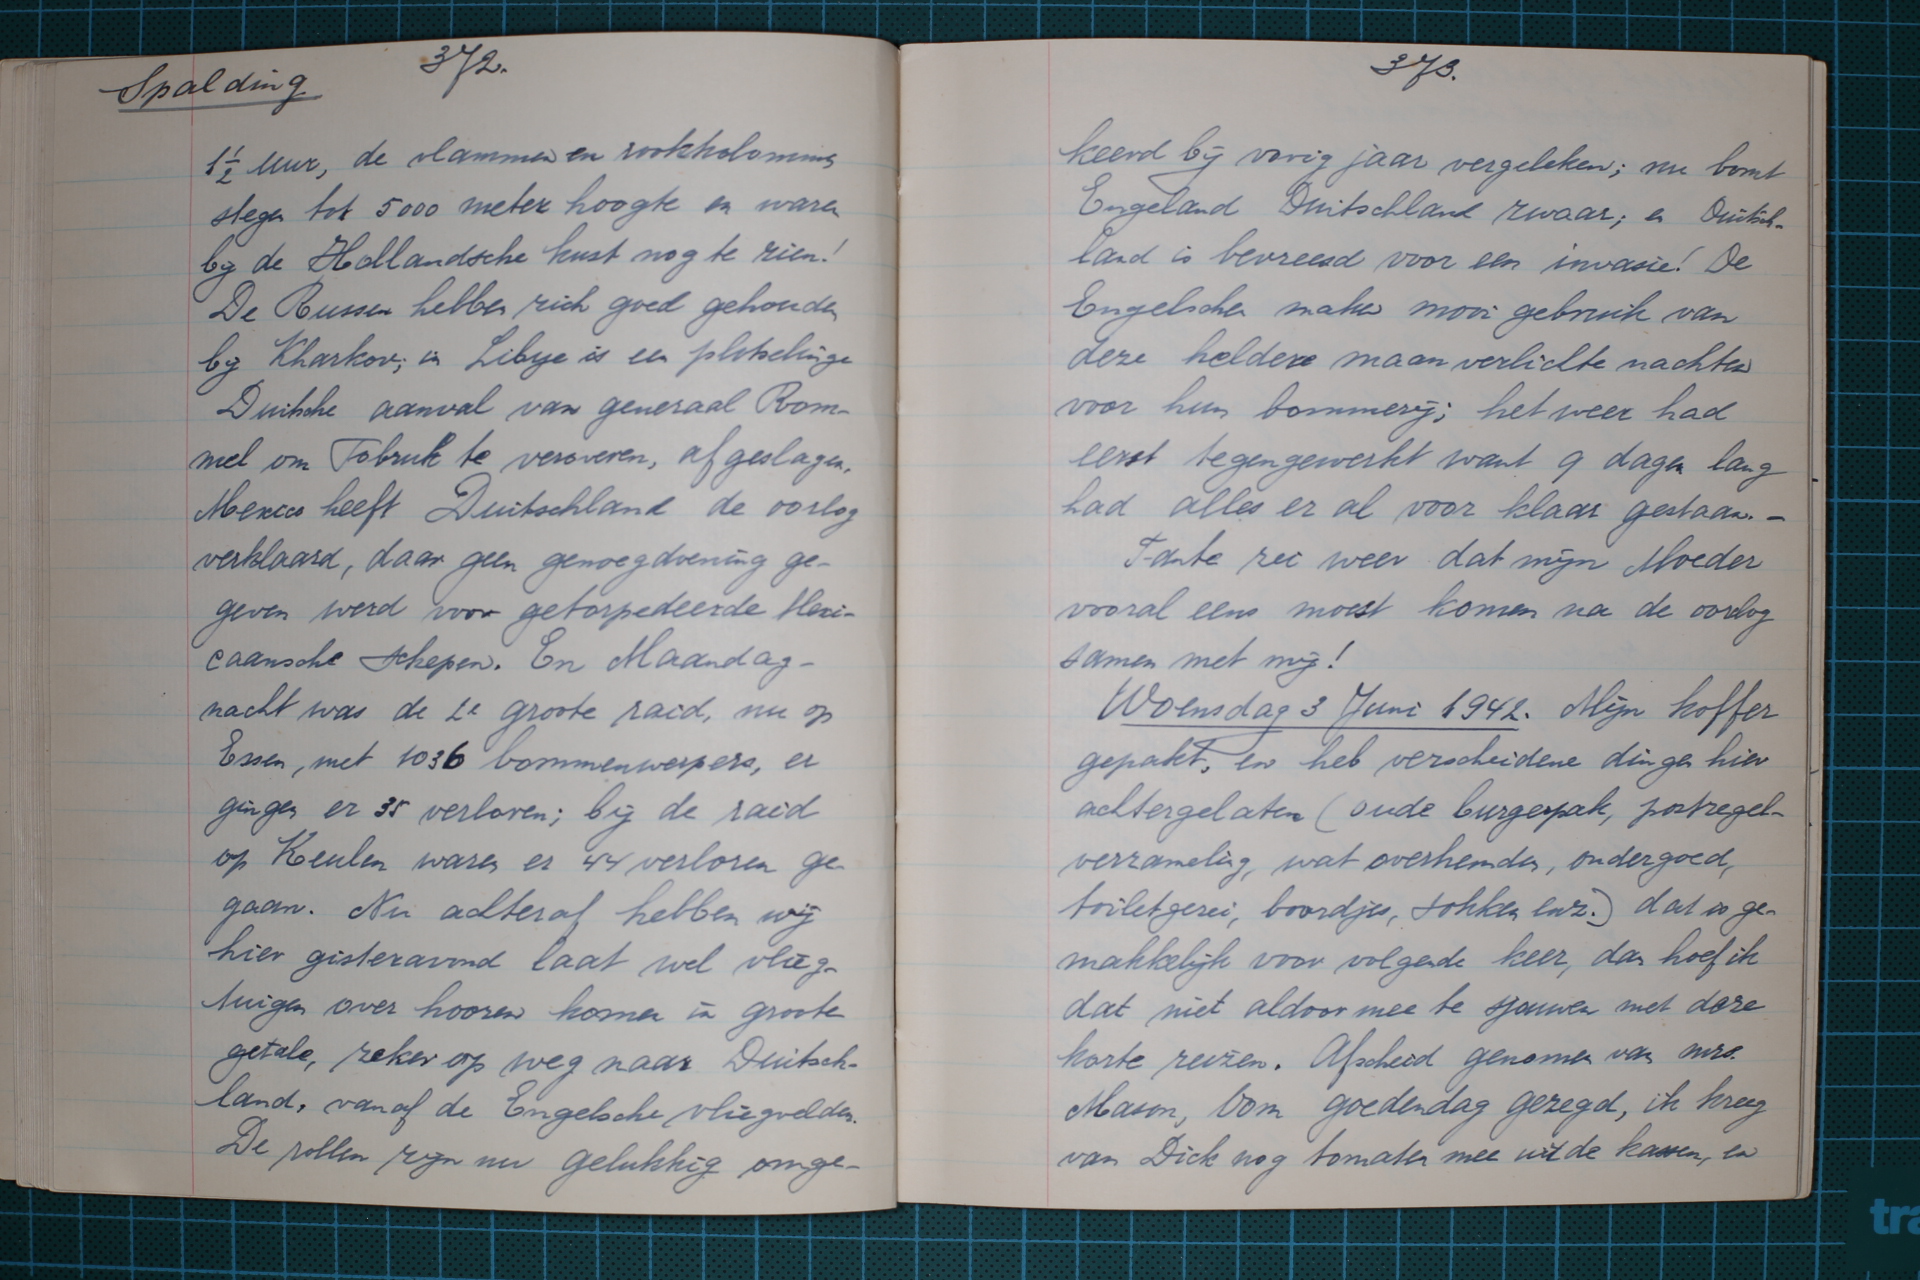 Spalding
372.
1½ uur, de vlammen en rookkolommen
stegen tot 5000 meter hoogte en waren
bij de Hollandsche kust nog te zien!
De Russen hebben zich goed gehouden
bij Kharkov; in Libye is een plotselinge
Duitsche aanval van generaal Rom-
mel om Tobruk te veroveren, afgeslagen.
Mexico heeft Duitschland de oorlog
verklaard, daar geen genoegdoening ge-
geven werd voor getorpedeerde Mexi-
caansche schepen. En Maandag-
nacht was de 2e groote raid, nu op
Essen, met 1036 bommenwerpers, er
gingen er 35 verloren; bij de raid
op Keulen waren er 44 verloren ge-
gaan. Nu achteraf hebben wij
hier gisteravond laat wel vlieg-
tuigen over hooren komen in groote
getale, zeker op weg naar Duitsch-
land, vanaf de Engelsche vliegvelden.
De rollen zijn nu gelukkig omge-
373.
keerd bij vorig jaar vergeleken; nu bomt
Engeland Duitschland zwaar; en Duitsch-
land is bevreesd voor een invasie! De
Engelschen maken mooi gebruik van
deze heldere maanverlichte nachten
voor hun bommerij; het weer had
eerst tegengewerkt want 9 dagen lang
had alles er al voor klaar gestaan. -
Tante zei weer dat mijn Moeder
vooral eens moest komen na de oorlog
samen met mij!
Woensdag 3 Juni 1942. Mijn koffer
gepakt, en heb verscheidene dingen hier
achtergelaten (oude burgerpak, postzegel-
verzameling, wat overhemden, ondergoed,
toiletgerei, boordjes, sokken enz.) dat is ge-
makkelijk voor volgende keer, dan hoef ik
dat niet aldoor mee te sjouwen met deze
korte reizen. Afscheid genomen van mrs.
Mason, Tom goedendag gezegd, ik kreeg
van Dick nog tomaten mee uit de kassen, en
tra